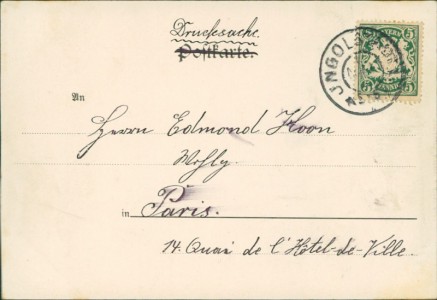 Drucksache.
Postkarte.
JNGOLS
5 5
5 5
An
Herrn Edmond Koon
Wohlg.
in Paris.
14. Quai de l'Hôtel-de-Ville.